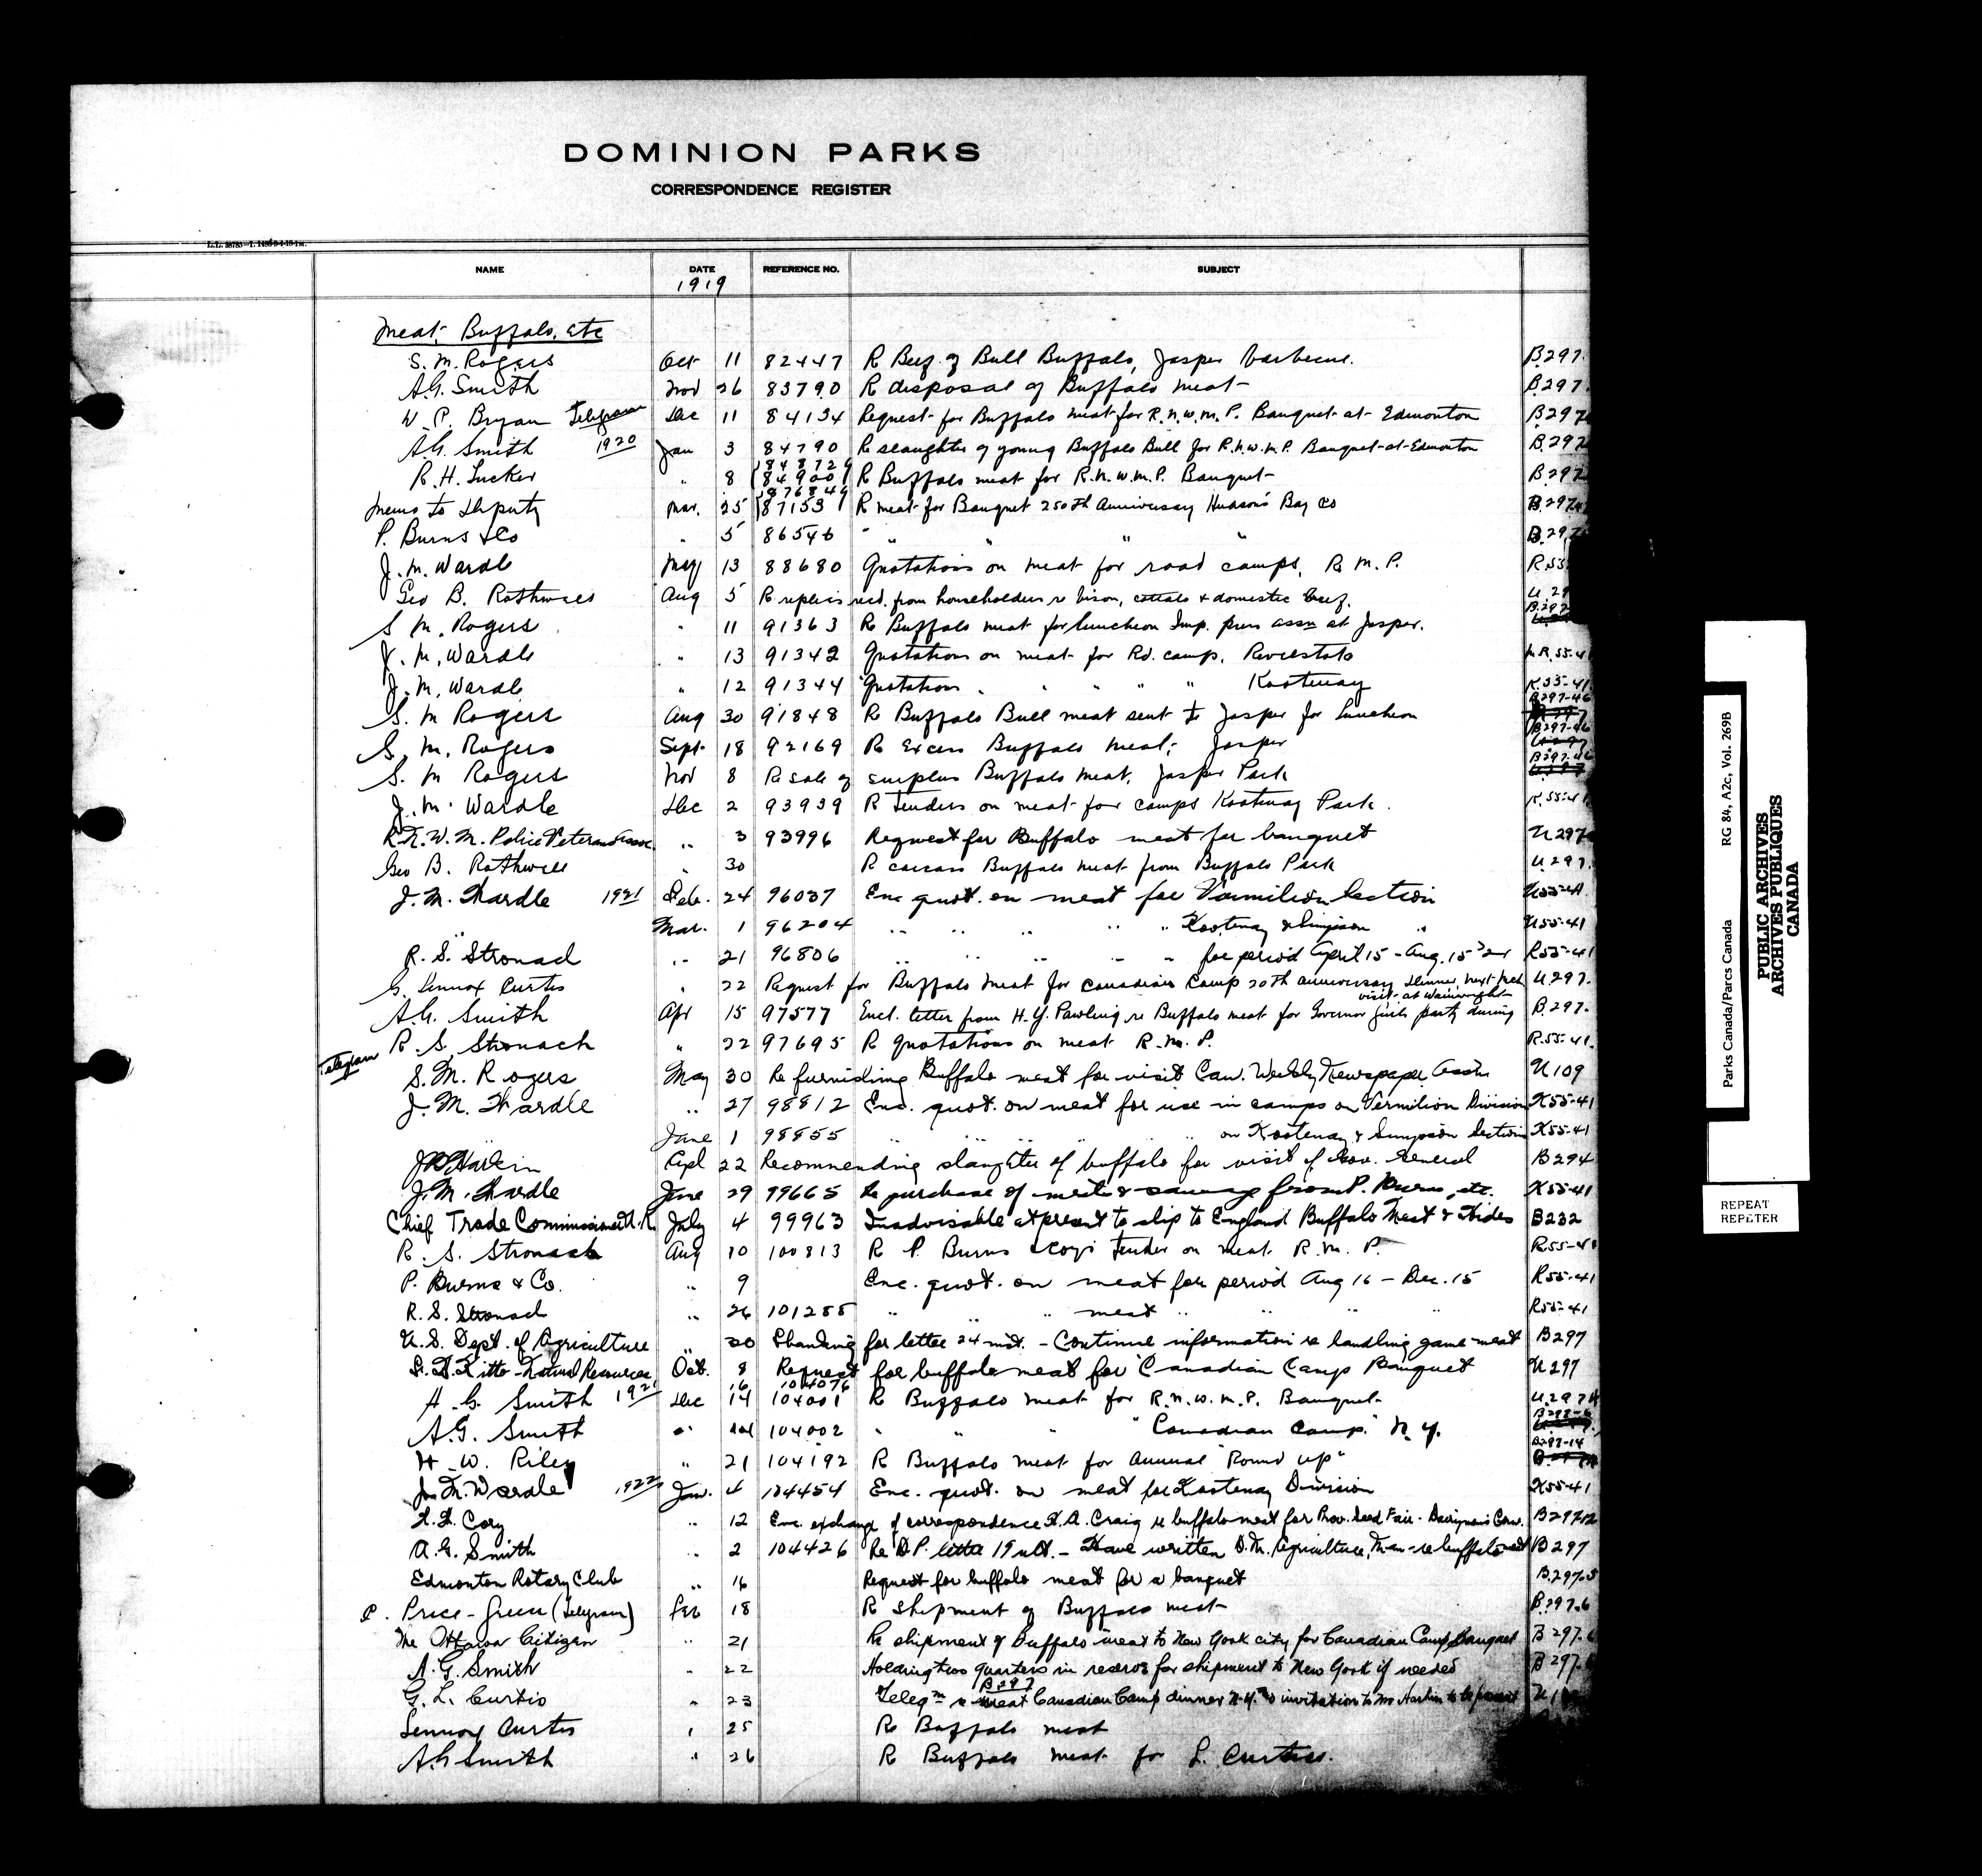 DOMINION PARKS
CORRESPONDENCE REGISTER
NAME DATE REFERENCE NO. SUBJECT
1919
Meat, Buffalo, etc
S. M. Rogers Oct 11 82447 R Beef of Bull Buffalo, Jasper barbecue. B297.
A.G. Smith Nov 26 83790 R disposal of Buffalo meat B297.
W. P. Bryan Telegram Dec 11 84134 Request for Buffalo meat for R.N.W.M.P. Banquet at Edmonton B297
A.G. Smith 1920 Jan 3 84790 Re slaughter of young Buffalo Bull for R.N.W.M.P. Banquet at Edmonton B297
R. H. Tucker " 8 84872 84900 R Buffalo meat for R.N.W.M.P. Banquet B297
Memo to Deputy Mar. 25 87684 87153 R meat for Banquet 250th Anniversary Hudson's Bay Co B297
P. Burns & Co " 5 86546 " " " " B.297
J. M. Wardle May 13 88680 Quotations on meat for road camps, R.M.P. R.55
Geo B. Rothwell Aug 5 R replies recd. from householders re bison, cattalo & domestic beef. U.29
S. M. Rogers " 11 91363 Re Buffalo meat for luncheon Imp. press assn at Jasper. B.297
J. M. Wardle " 13 91342 Quotations on meat for Rd. camp. Revelstoke MR.55-41
J. M. Wardle " 12 91344 Quotations " " " " " Kootenay K.55-41
S. M Rogers Aug 30 91848 Re Buffalo Bull meat sent to Jasper for luncheon B297-46
S. M. Rogers Sept. 18 92169 Re Excess Buffalo meat, Jasper B297-46
S. M Rogers Nov 8 Re sale of surplus Buffalo meat, Jasper Park B297-46
J. M. Wardle Dec 2 93939 R Tenders on meat for camps Kootenay Park. K.55-41
R.N.W.M. Police Veterans Assoc " 3 93996 Request for Buffalo meat for banquet U297
Geo B. Rothwell " 30 R carcass Buffalo meat from Buffalo Park U.297.
J. M. Wardle 1921 Feb. 24 96037 Enc quot. on meat for Vermilion Section K55-41
" Mar. 1 96204 " " " " " Kootenay & Simpson " K55-41
R. S. Stronach " 21 96806 " " " " " for period April 15 - Aug. 15 '21 R55-41
G. Lennox Curtis " 22 Request for Buffalo meat for Canadian Camp 20th anniversary dinner, next Mch U.297.
A.G. Smith Apr 15 97577 Encl. letter from H.Y. Pawling re Buffalo meat for Governor Gen's party during visit at Wainwright B.297.
Telegram R. S. Stronach " 22 97695 R quotations on meat R.M.P. R.55-41.
S. M. Rogers May 30 Re furnishing Buffalo meat for visit Can. Weekly Newspaper Assn U109
J. M. Wardle " 27 98812 Enc. quot. on meat for use in camps on Vermilion Division K55-41
" June 1 98855 " " " " on Kootenay & Simpson Section K55-41
JB Harkin Apl 22 Recommending slaughter of buffalo for visit of Gov. General B294
J. M. Wardle June 29 99665 Re purchase of meats & sausage from P. Burns, etc. K55-41
Chief Trade Commissioner July 4 99963 Inadvisable at present to ship to England Buffalo Meat & Hides B232
R. S. Stronach Aug 10 100813 R P. Burns & Coy's Tender on meat R.M.P. R55-41
P. Burns & Co. " 9 Enc. quot. on meat for period Aug 16 - Dec. 15 R55-41
R. S. Stronach " 26 101255 " " meat " " " " R55-41
U.S. Dept. of Agriculture " 20 Thanking for letter 24 inst. - Continue information re handling game meat B297
F. H. Kitto - Natural Resources Oct. 8 Request for buffalo meat for Canadian Camp Banquet U297
A. G. Smith 1921 Dec 16 14 104076 104001 R Buffalo meat for R.N.W.M.P. Banquet U.297
A.G. Smith " 14 104002 " " " "Canadian Camp." N.Y. B297-6
H. W. Riley " 21 104192 R Buffalo meat for annual "Round up" B297-14
J. M. Wardle 1922 Jan. 4 104454 Enc. quot. on meat for Kootenay Division K55-41
W. W. Cory " 12 Enc. exchange of correspondence H.A. Craig re buffalo meat for Prov. Seed Fair - Dairymen's Conv. B297-12
A. G. Smith " 2 104426 Re D.P. letter 19 ult. - Have written D.M. Agriculture, Man - re buffalo meat B297
Edmonton Rotary Club " 16 Request for buffalo meat for a banquet B.297-5
C. Price-Green (Telegram) Feb 18 R shipment of Buffalo meat B.297.6
The Ottawa Citizen " 21 Re shipment of Buffalo meat to New York city for Canadian Camp Banquet B297-6
A. G. Smith " 22 Holding two quarters in reserve for shipment to New York if needed B297-6
G. L. Curtis " 23 Telegm re meat Canadian Camp dinner N.Y. & invitation to Mr Harkin to be present B297
Lennox Curtis " 25 Re Buffalo meat
A.G Smith " 26 R Buffalo meat for L. Curtiss.
Parks Canada/Parcs Canada RG 84, A2c, Vol. 269B
PUBLIC ARCHIVES
ARCHIVES PUBLIQUES
CANADA
REPEAT
REPETER